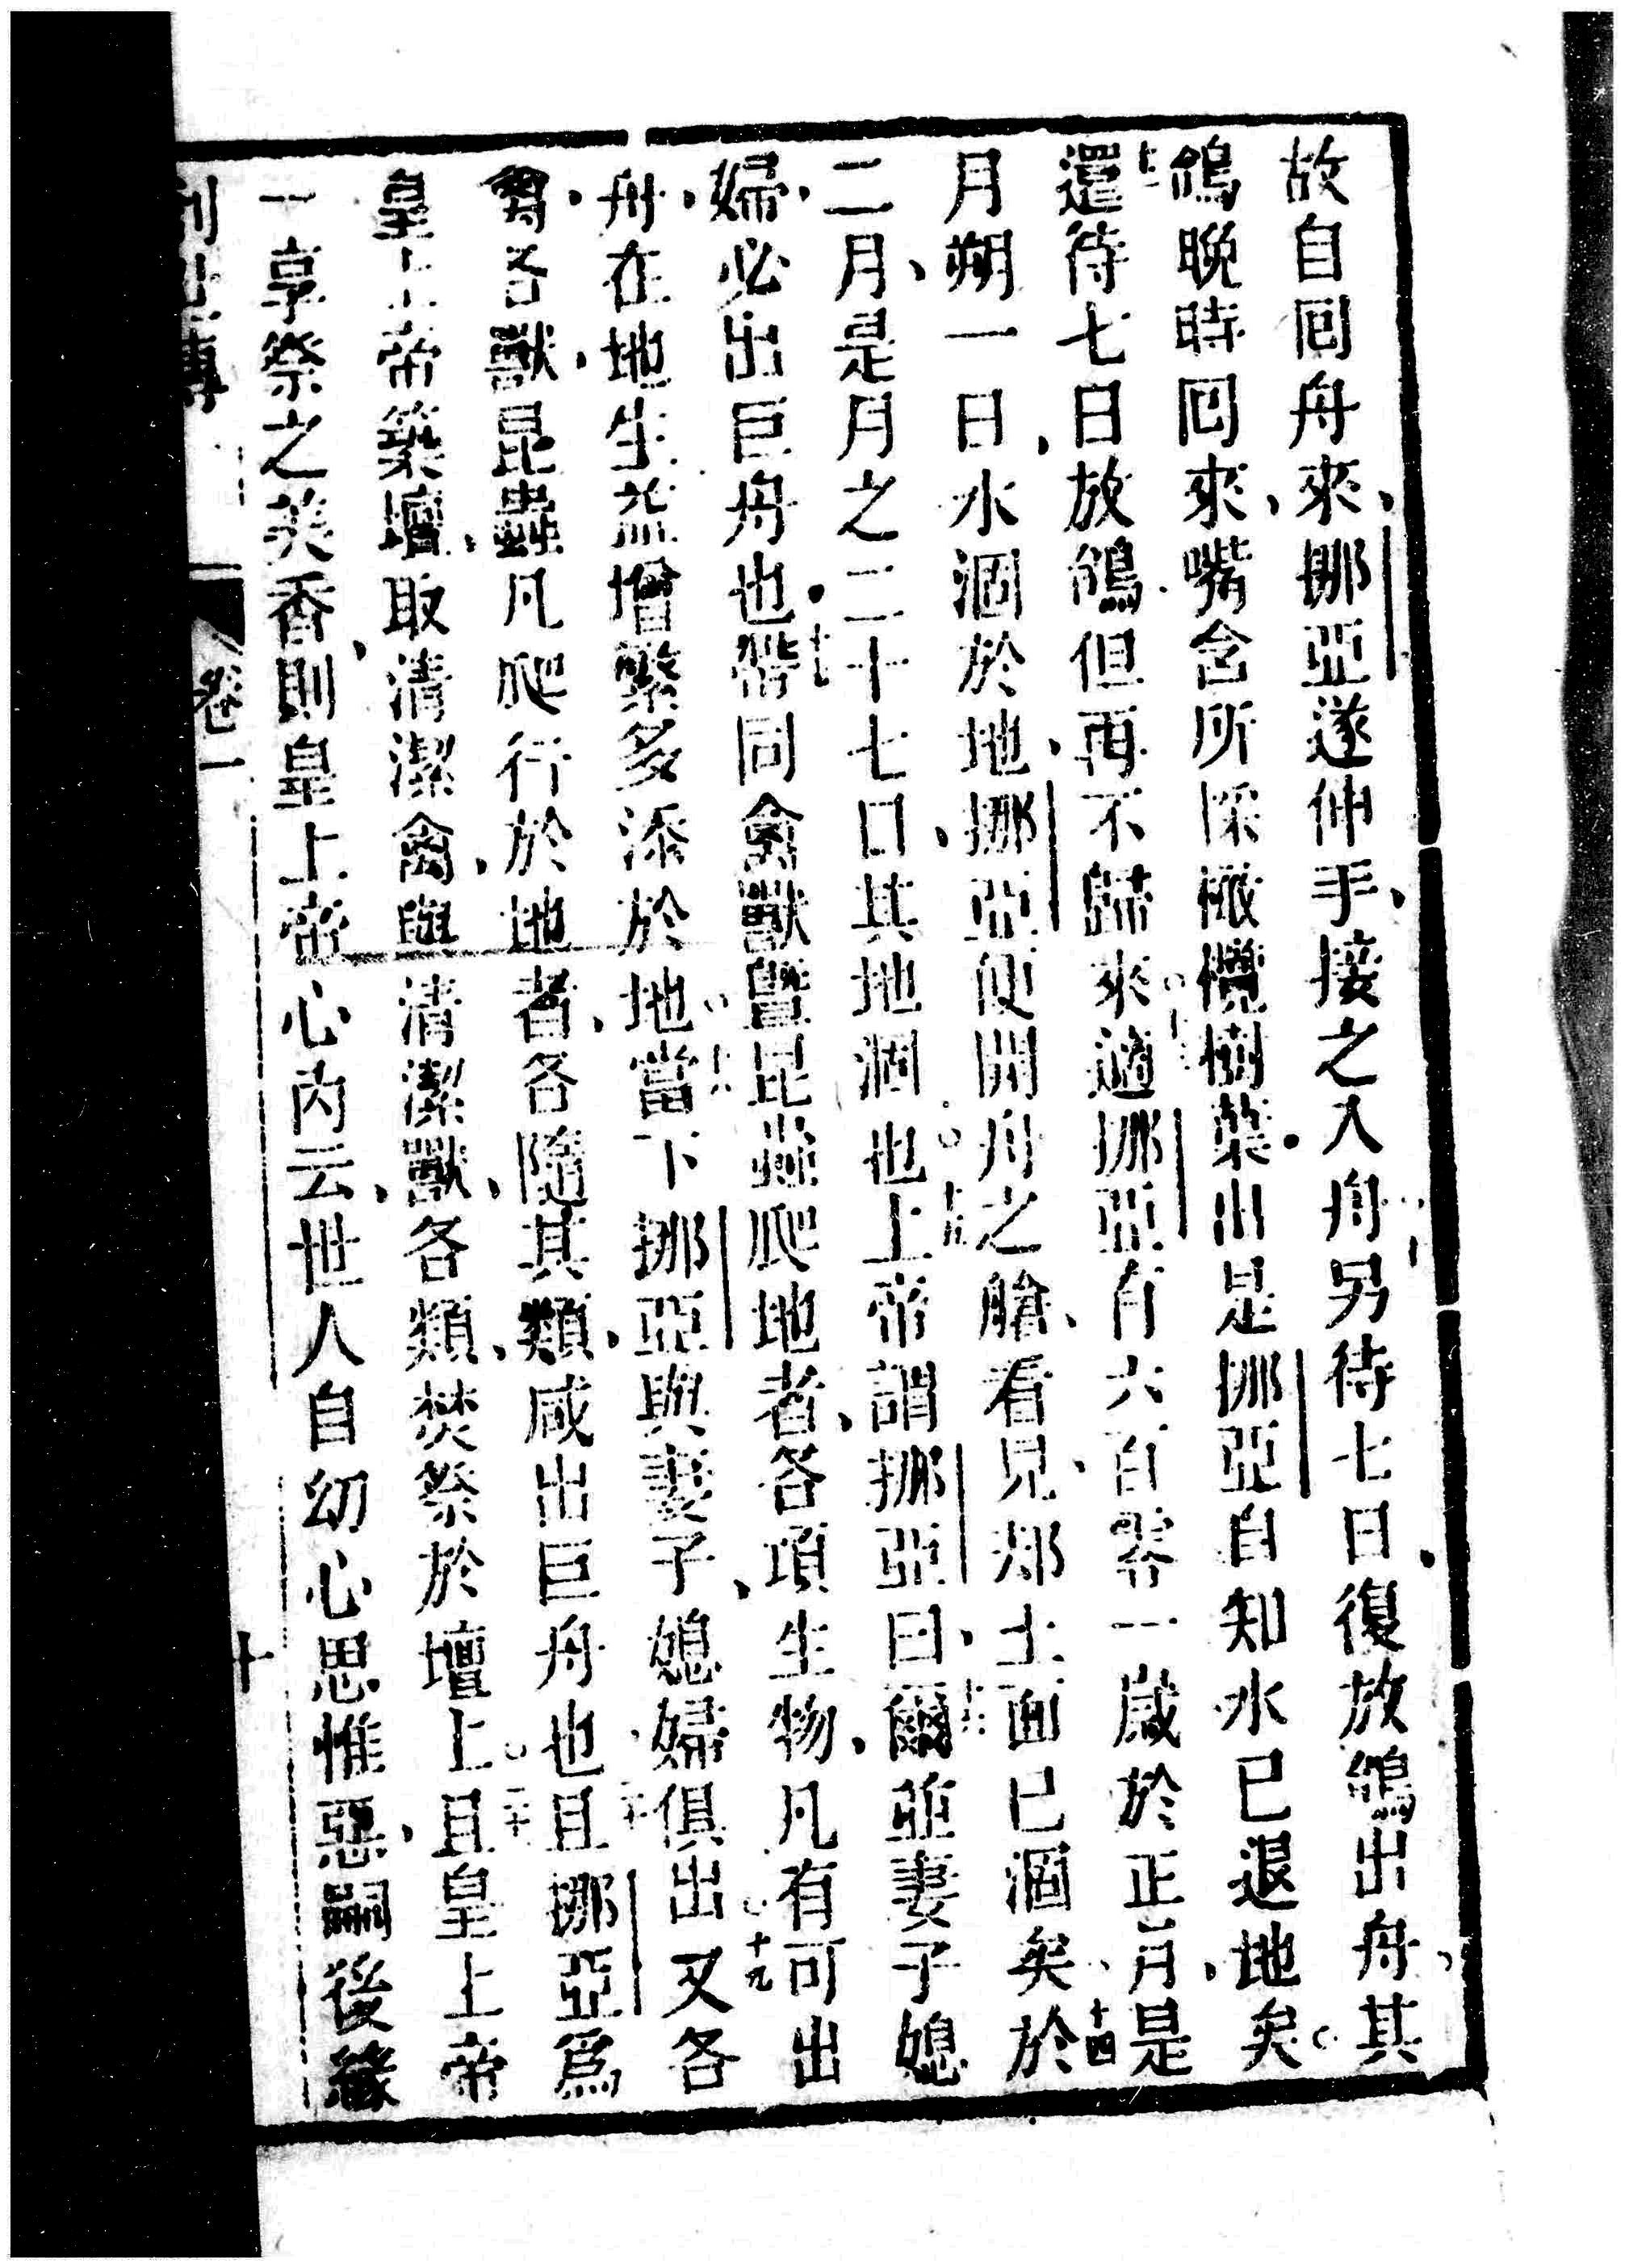 故自囘舟來、挪亞遂伸手、接之入舟另待七日復放鴿出舟、其
鴿晚時囘來、嘴含所採橄欖樹葉出是挪亞自知水已退地矣。
十二還待七日放鴿但再不歸來適挪亞有六百零一歲於正月、是
月朔一日、水涸於地、挪亞便開舟之艙、看見郏土面已涸矣、十四於
二月、是月之二十七日、其地涸也。上帝謂挪亞曰、爾並妻子媳
婦、必出巨舟也。十七帶同禽獸曁昆蟲爬地者、各項生物、凡有可出
舟、在地生益增繁多添於地。當下挪亞與妻子、媳婦俱出。十九又各
禽、各獸、昆蟲凡爬行於地者、各隨其類、咸出巨舟也。二十且挪亞爲
皇上帝築壇、取清潔禽、與清潔獸、各類、焚祭於壇上。且皇上帝
一享祭之美香、則皇上帝心內云、世人自幼心思惟惡、嗣後緣
卷一
十